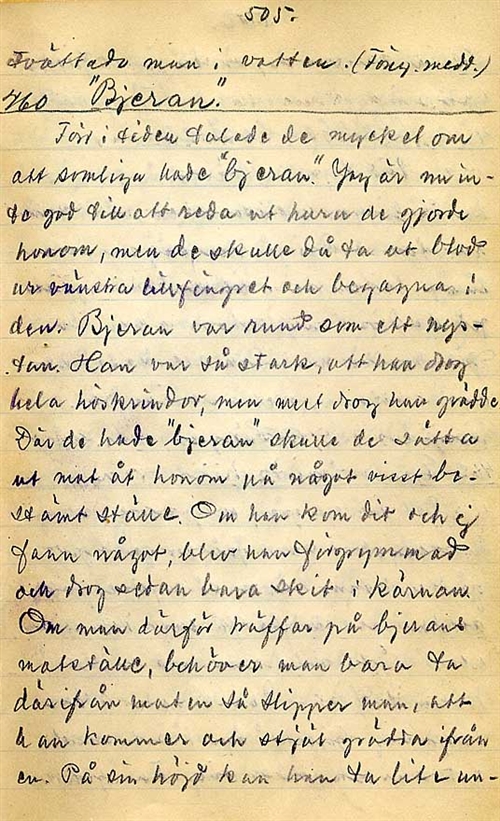 505.
tvättade man i vatten. (Föreg. medd.)
460 "Bjeran".
Förr i tiden talade de mycket om
att somliga hade "bjeran". Jag är nu in-
te god till att reda ut huru de gjorde
honom, men de skulle då ta ut blod
ur vänstra lillfingret och begagna i
den. Bjeran var rund som ett nys-
tan. Han var så stark, att han drog
hela höskrindor, men mest drog han grädde
Där de hade "bjeran" skulle de sätta
ut mat åt honom på något visst be-
stämt ställe. Om han kom dit och ej
fann något, blev han förgrymmad
och drog sedan bara skit i kärnan.
Om man därför träffar på bjerans
matställe, behöver man bara ta
därifrån maten så slipper man, att
han kommer och stjäl grädda ifrån
en. På sin höjd kan han ta lite un-